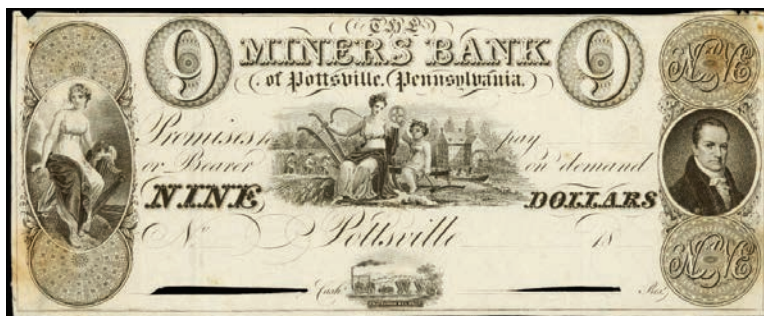 THE
9 MINERS BANK 9
of Pottsville, Pennsylvania.
NINE
Promises to pay
or Bearer on demand
NINE DOLLARS
No Pottsville 18
Cashr Prest
NINE